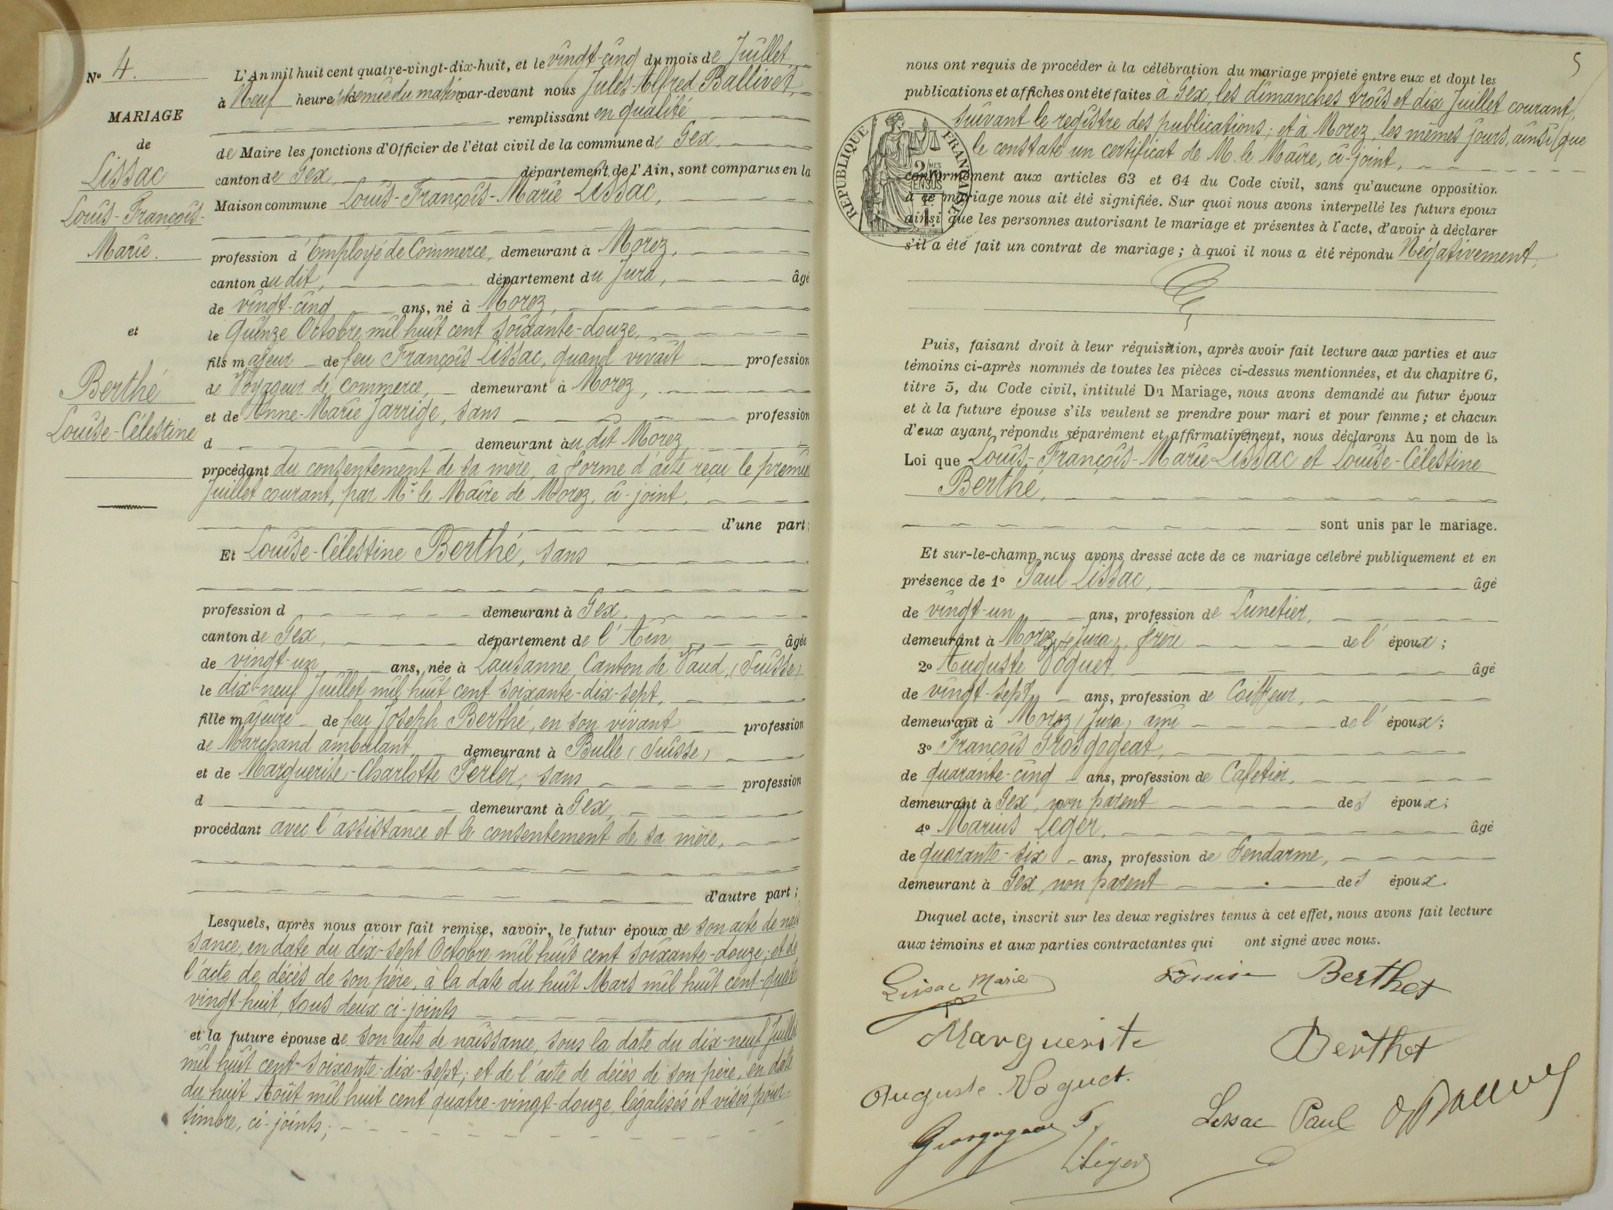 N° 4.
MARIAGE
de
Lissac
Louis-François-
Marie.
et
Berthé
Louise-Célestine
L'An mil huit cent quatre-vingt-dix-huit, et le vingt-cinq du mois de Juillet,
à Neuf heures demie du matin par-devant nous Jules-Alfred Ballivet,
remplissant en qualité
de Maire les fonctions d'Officier de l'état civil de la commune de Gex,
canton de Gex, département de l'Ain, sont comparus en la
Maison commune Louis-François-Marie Lissac,
profession d'Employé de Commerce, demeurant à Morez,
canton du dit, département du Jura, âgé
de vingt-cinq ans, né à Morez,
le Quinze Octobre mil huit cent soixante-douze,
fils majeur de feu François Lissac, quand vivait profession
de Voyageur de commerce, demeurant à Morez,
et de Anne-Marie Jarrige, sans profession
d demeurant au dit Morez,
procédant du consentement de sa mère, à forme d'acte reçu le premier
Juillet courant, par Mr le Maire de Morez, ci-joint,
d'une part;
Et Louise-Célestine Berthé, sans
profession d demeurant à Gex,
canton de Gex, département de l'Ain âgée
de vingt-un ans, née à Lausanne, Canton de Vaud, (Suisse)
le dix-neuf Juillet mil huit cent soixante-dix-sept,
fille majeure de feu Joseph Berthé, en son vivant profession
de Marchand ambulant, demeurant à Bulle (Suisse)
et de Marguerite-Charlotte Perler, sans profession
d demeurant à Gex,
procédant avec l'assistance et le consentement de sa mère,
d'autre part;
Lesquels, après nous avoir fait remise, savoir, le futur époux de son acte de nais
sance, en date du dix-sept Octobre mil huit cent soixante-douze; et de
l'acte de décès de son père, à la date du huit Mars mil huit cent-quatre
vingt-huit, tous deux ci-joints
et la future épouse de son acte de naissance, sous la date du dix-neuf Juillet
mil huit cent-soixante-dix-sept; et de l'acte de décès de son père, en date
du huit Août mil huit cent quatre-vingt-douze, légalisés et visés pour
timbre, ci-joints;
5
nous ont requis de procéder à la célébration du mariage projeté entre eux et dont les
publications et affiches ont été faites à Gex, les dimanches trois et dix Juillet courant,
suivant le registre des publications; et à Morez les mêmes jours, ainsi que
le constate un certificat de M. le Maire, ci-joint,
RÉPUBLIQUE FRANÇAISE
conformément aux articles 63 et 64 du Code civil, sans qu'aucune opposition
à ce mariage nous ait été signifiée. Sur quoi nous avons interpellé les futurs époux
ainsi que les personnes autorisant le mariage et présentes à l'acte, d'avoir à déclarer
s'il a été fait un contrat de mariage; à quoi il nous a été répondu Négativement,
Puis, faisant droit à leur réquisition, après avoir fait lecture aux parties et aux
témoins ci-après nommés de toutes les pièces ci-dessus mentionnées, et du chapitre 6,
titre 5, du Code civil, intitulé Du Mariage, nous avons demandé au futur époux
et à la future épouse s'ils veulent se prendre pour mari et pour femme; et chacun
d'eux ayant répondu séparément et affirmativement, nous déclarons Au nom de la
Loi que Louis-François-Marie Lissac et Louise-Célestine
Berthé,
sont unis par le mariage.
Et sur-le-champ nous avons dressé acte de ce mariage célébré publiquement et en
présence de 1° Paul Lissac, âgé
de vingt-un ans, profession de Lunetier,
demeurant à Morez, Jura, frère de l'époux;
2° Auguste Voguet, âgé
de vingt-sept ans, profession de Coiffeur,
demeurant à Morez (Jura) ami de l'époux;
3° François Grosgogeat,
de quarante-cinq ans, profession de Cafetier,
demeurant à Gex, non parent des époux;
4° Marius Léger, âgé
de quarante-six ans, profession de Gendarme,
demeurant à Gex, non parent des époux.
Duquel acte, inscrit sur les deux registres tenus à cet effet, nous avons fait lecture
aux témoins et aux parties contractantes qui ont signé avec nous.
Lissac Marie Louise Berthet
Marguerite Berthet
Auguste Voguet.
Lissac Paul
Léger